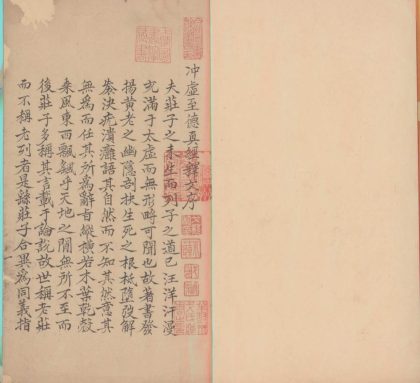 冲虛至德真經釋文序
夫莊子之未生而列子之道已汪洋汗漫
充滿于太虛而無形畤可聞也故著書發
揚黃老之幽隱剖抉生死之根柢墮弢解
袠決疣潰癰語其自然而不知其然意其
無爲而任其所爲辭旨縱橫若木葉乾殼
乘風東西飄飖乎天地之間無所不至而
後莊子多稱其言載于論說故世稱老莊
而不稱老列者是繇莊子合異爲同義指